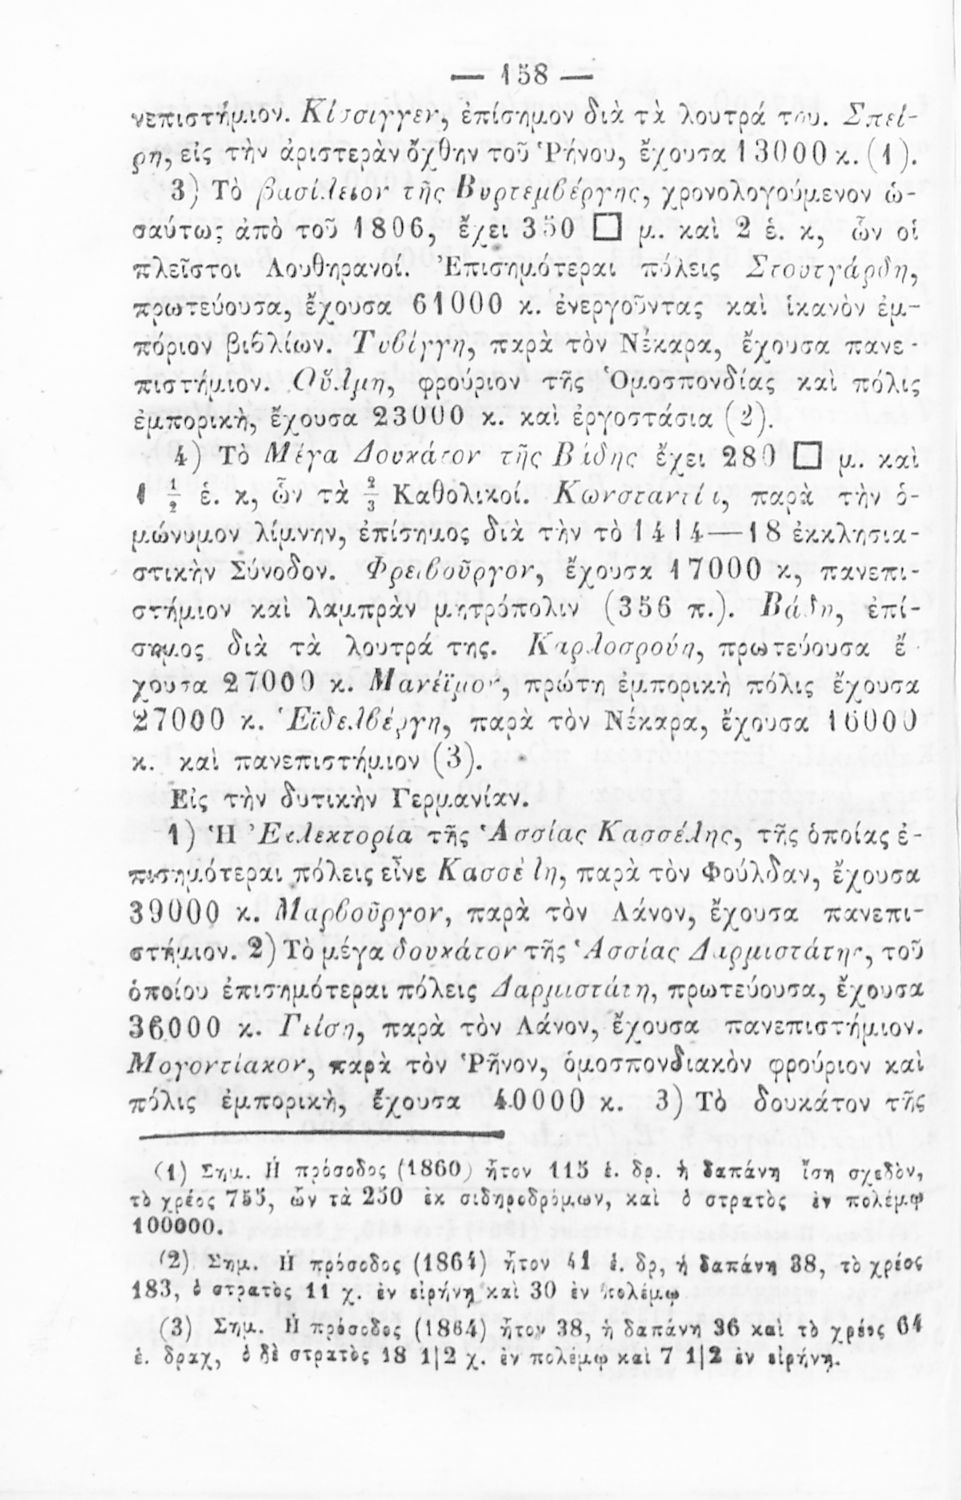 — 158 —
νεπιστήμιον. Κίσσιγγεν, ἐπίσημον διὰ τὰ λουτρά του. Σπεί-
ρη, εἰς τὴν ἀριστερὰν ὄχθην τοῦ Ῥήνου, ἔχουσα 13000 κ. (1).
3) Τὸ βασίλειον τῆς Βυρτεμβέργης, χρονολογούμενον ὡ-
σαύτως ἀπὸ τοῦ 1806, ἔχει 350 □ μ. καὶ 2 ἑ. κ, ὧν οἱ
πλεῖστοι Λουθηρανοί. Ἐπισημότεραι πόλεις Στουτγάρδη,
πρωτεύουσα, ἔχουσα 61000 κ. ἐνεργοῦντας καὶ ἱκανὸν ἐμ-
πόριον βιβλίων. Τυβίγγη, παρὰ τὸν Νέκαρα, ἔχουσα πανε-
πιστήμιον. Οὔλμη, φρούριον τῆς Ὁμοσπονδίας καὶ πόλις
ἐμπορικὴ, ἔχουσα 23000 κ. καὶ ἐργοστάσια (2).
4) Τὸ Μέγα Δουκάτον τῆς Βάδης ἔχει 280 □ μ. καὶ
1 1/2 ἑ. κ, ὧν τὰ 2/3 Καθολικοί. Κωνσταντία, παρὰ τὴν ὁ-
μώνυμον λίμνην, ἐπίσημος διὰ τὴν τὸ 1414—18 ἐκκλησια-
στικὴν Σύνοδον. Φρειβοῦργον, ἔχουσα 17000 κ, πανεπι-
στήμιον καὶ λαμπρὰν μητρόπολιν (356 π.). Βάδη, ἐπί-
σημος διὰ τὰ λουτρά της. Καρλοσρούη, πρωτεύουσα ἔ-
χουσα 27000 κ. Μανέϊμον, πρώτη ἐμπορικὴ πόλις ἔχουσα
27000 κ. Ἑϊδελβέργη, παρὰ τὸν Νέκαρα, ἔχουσα 16000
κ. καὶ πανεπιστήμιον (3).
Εἰς τὴν δυτικὴν Γερμανίαν.
1) Ἡ Ἐκλεκτορία τῆς Ἁσσίας Κασσέλης, τῆς ὁποίας ἐ-
πισημότεραι πόλεις εἶνε Κασσέλη, παρὰ τὸν Φούλδαν, ἔχουσα
39000 κ. Μαρβοῦργον, παρὰ τὸν Λάνον, ἔχουσα πανεπι-
στήμιον. 2) Τὸ μέγα δουκάτον τῆς Ἁσσίας Δαρμιστάτης, τοῦ
ὁποίου ἐπισημότεραι πόλεις Δαρμιστάτη, πρωτεύουσα, ἔχουσα
36000 κ. Γείση, παρὰ τὸν Λάνον, ἔχουσα πανεπιστήμιον.
Μογοντίακον, παρὰ τὸν Ῥῆνον, ὁμοσπονδιακὸν φρούριον καὶ
πόλις ἐμπορικὴ, ἔχουσα 40000 κ. 3) Τὸ δουκάτον τῆς
(1) Σημ. Ἡ πρόσοδος (1860) ἦτον 115 ἑ. δρ. ἡ δαπάνη ἴση σχεδὸν,
τὸ χρέος 755, ὧν τὰ 250 ἐκ σιδηροδρόμων, καὶ ὁ στρατὸς ἐν πολέμῳ
100000.
(2) Σημ. Ἡ πρόσοδος (1864) ἦτον 41 ἑ. δρ, ἡ δαπάνη 38, τὸ χρέος
183, ὁ στρατὸς 11 χ. ἐν εἰρήνῃ καὶ 30 ἐν πολέμῳ
(3) Σημ. Ἡ πρόσοδος (1864) ἦτον 38, ἡ δαπάνη 36 καὶ τὸ χρέος 64
ἑ. δραχ, ὁ δὲ στρατὸς 18 1|2 χ. ἐν πολέμῳ καὶ 7 1|2 ἐν εἰρήνῃ.